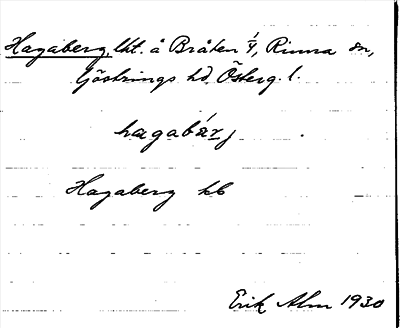 Hagaberg, lht. å Bråten 1/4, Rinna sn,
Göstrings hd, Österg. l.
hagabärj
Hagaberg kb
Erik Alm 1930